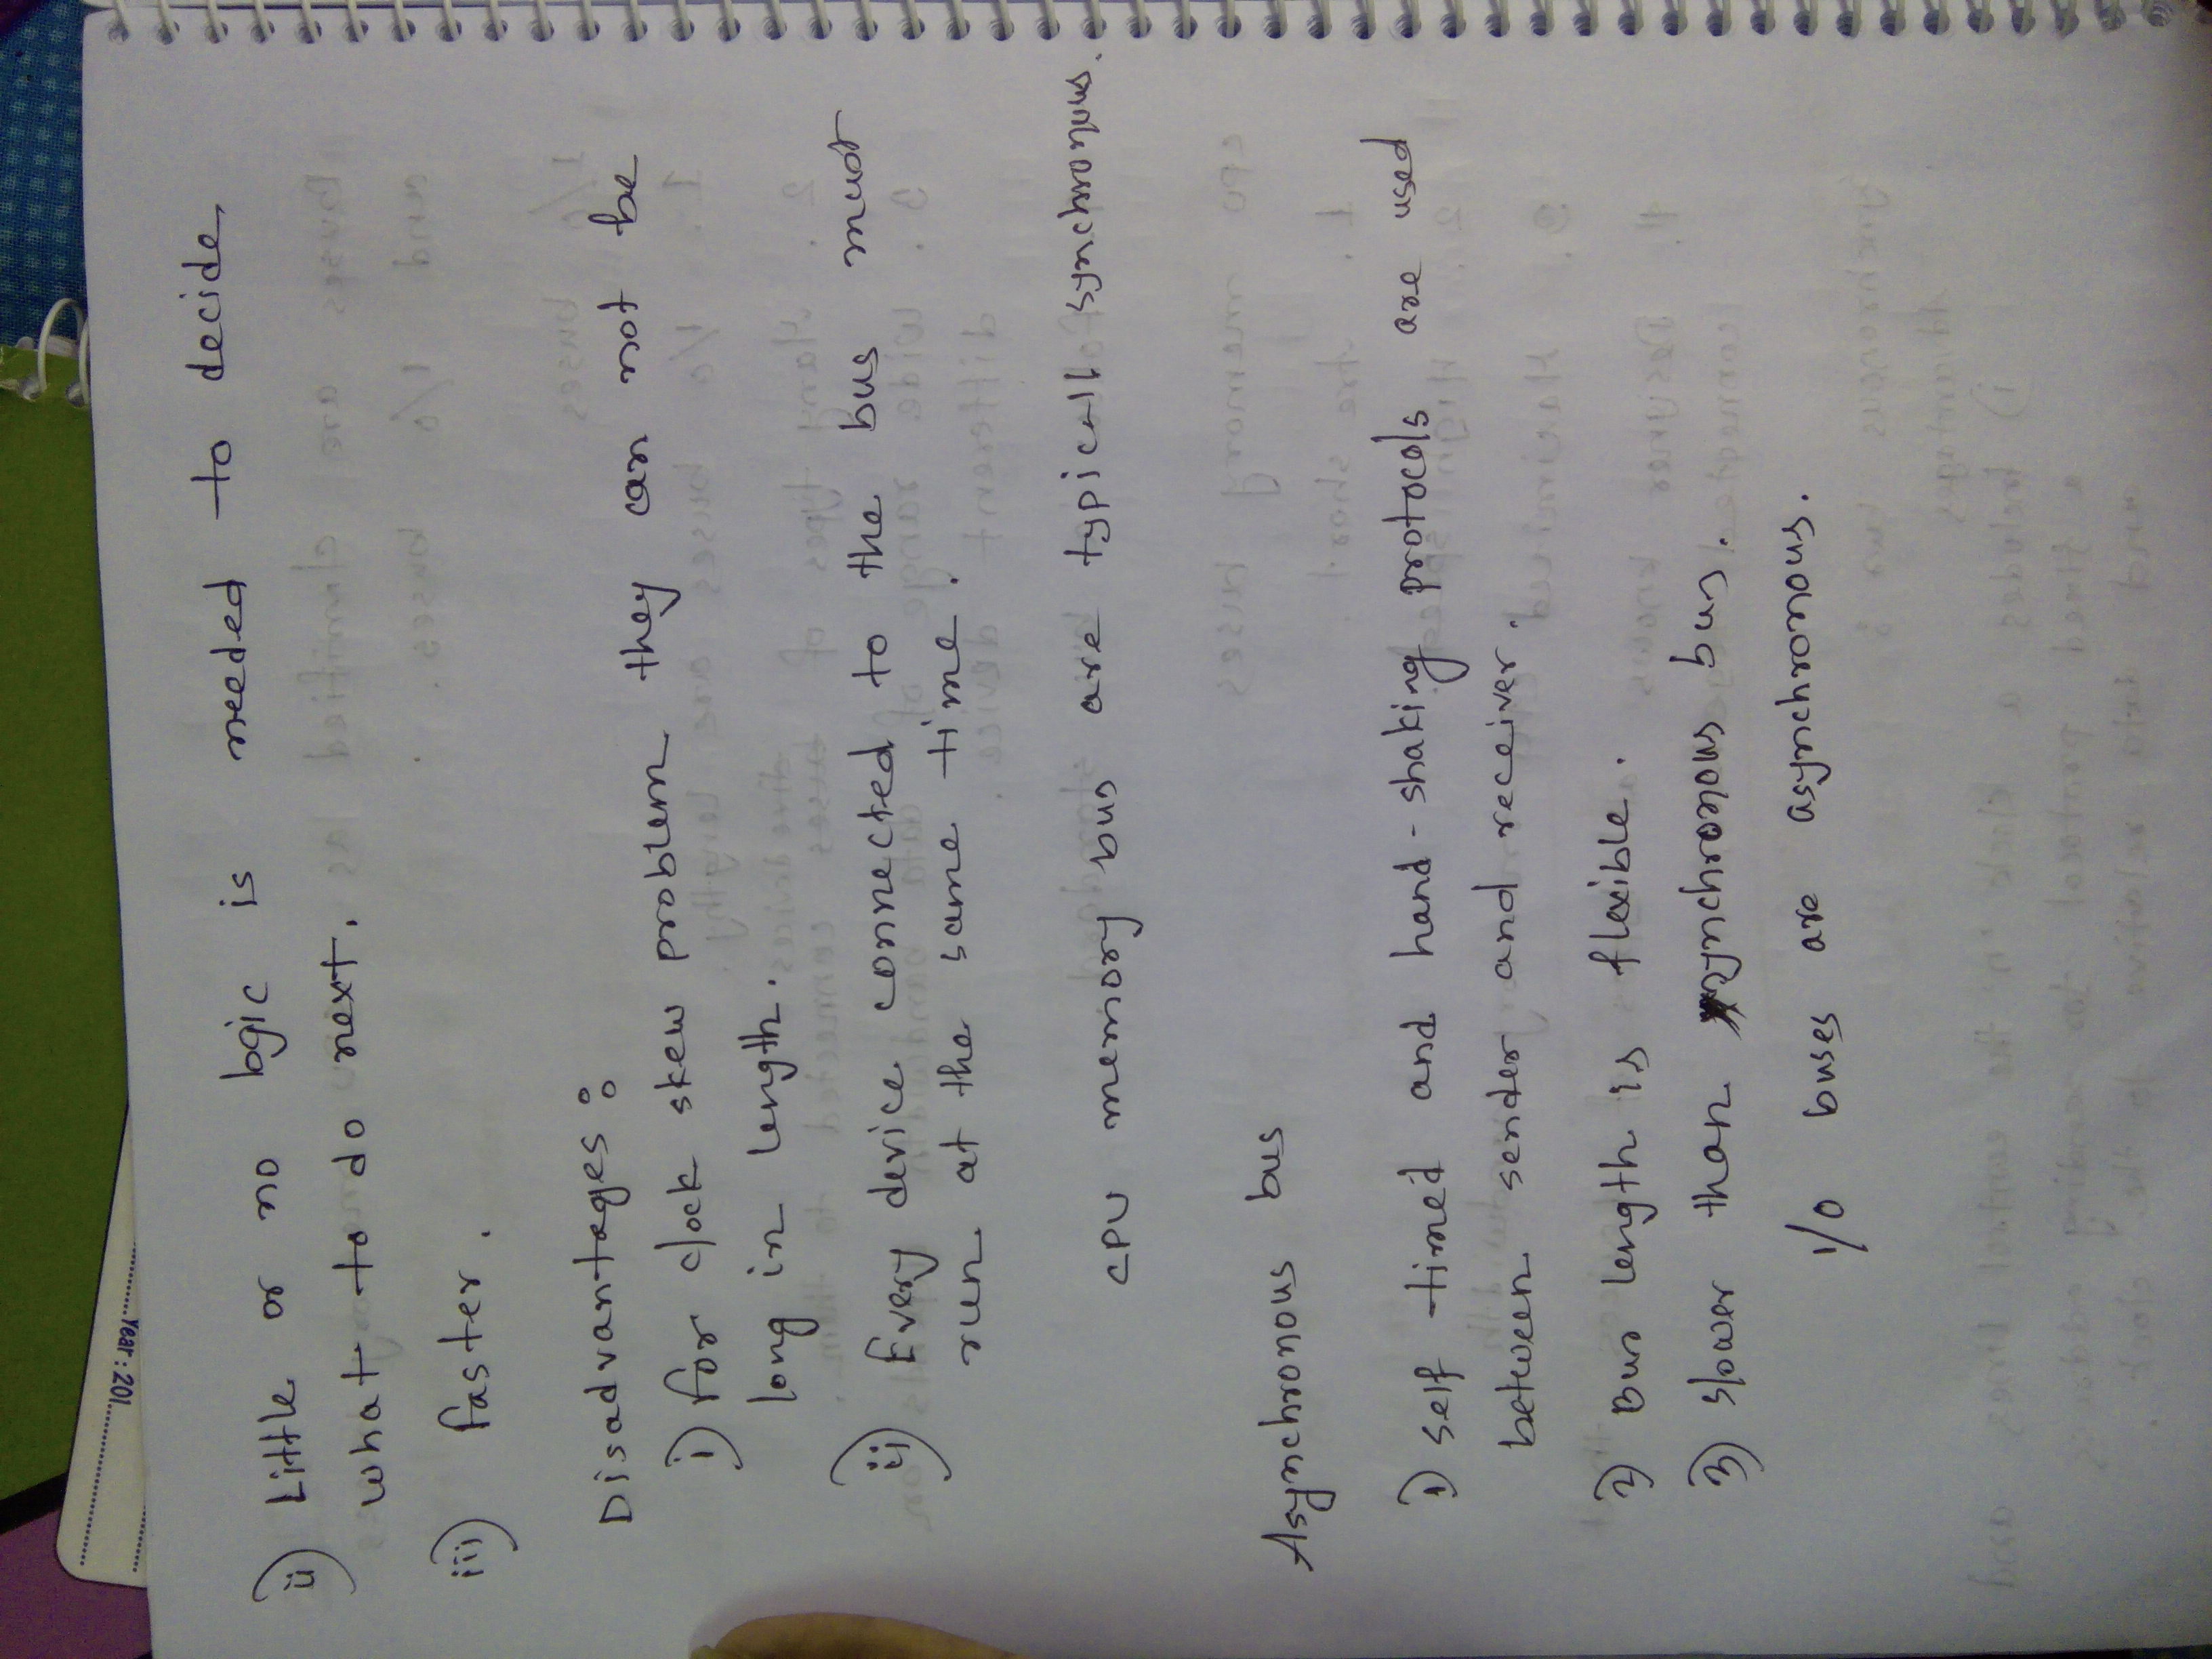 Year : 201
ii) Little or no logic is needed to decide
what to do next.
iii) Faster.
Disadvantages :
i) For clock skew problem they can not be
long in length.
ii) Every device connected to the bus must
run at the same time.
CPU memory bus are typicall synchronous.
Asynchronous bus
1) Self timed and hand-shaking protocols are used
between sender and receiver.
2) Bus length is flexible.
3) slower than synchronous bus.
I/O buses are asynchronous.